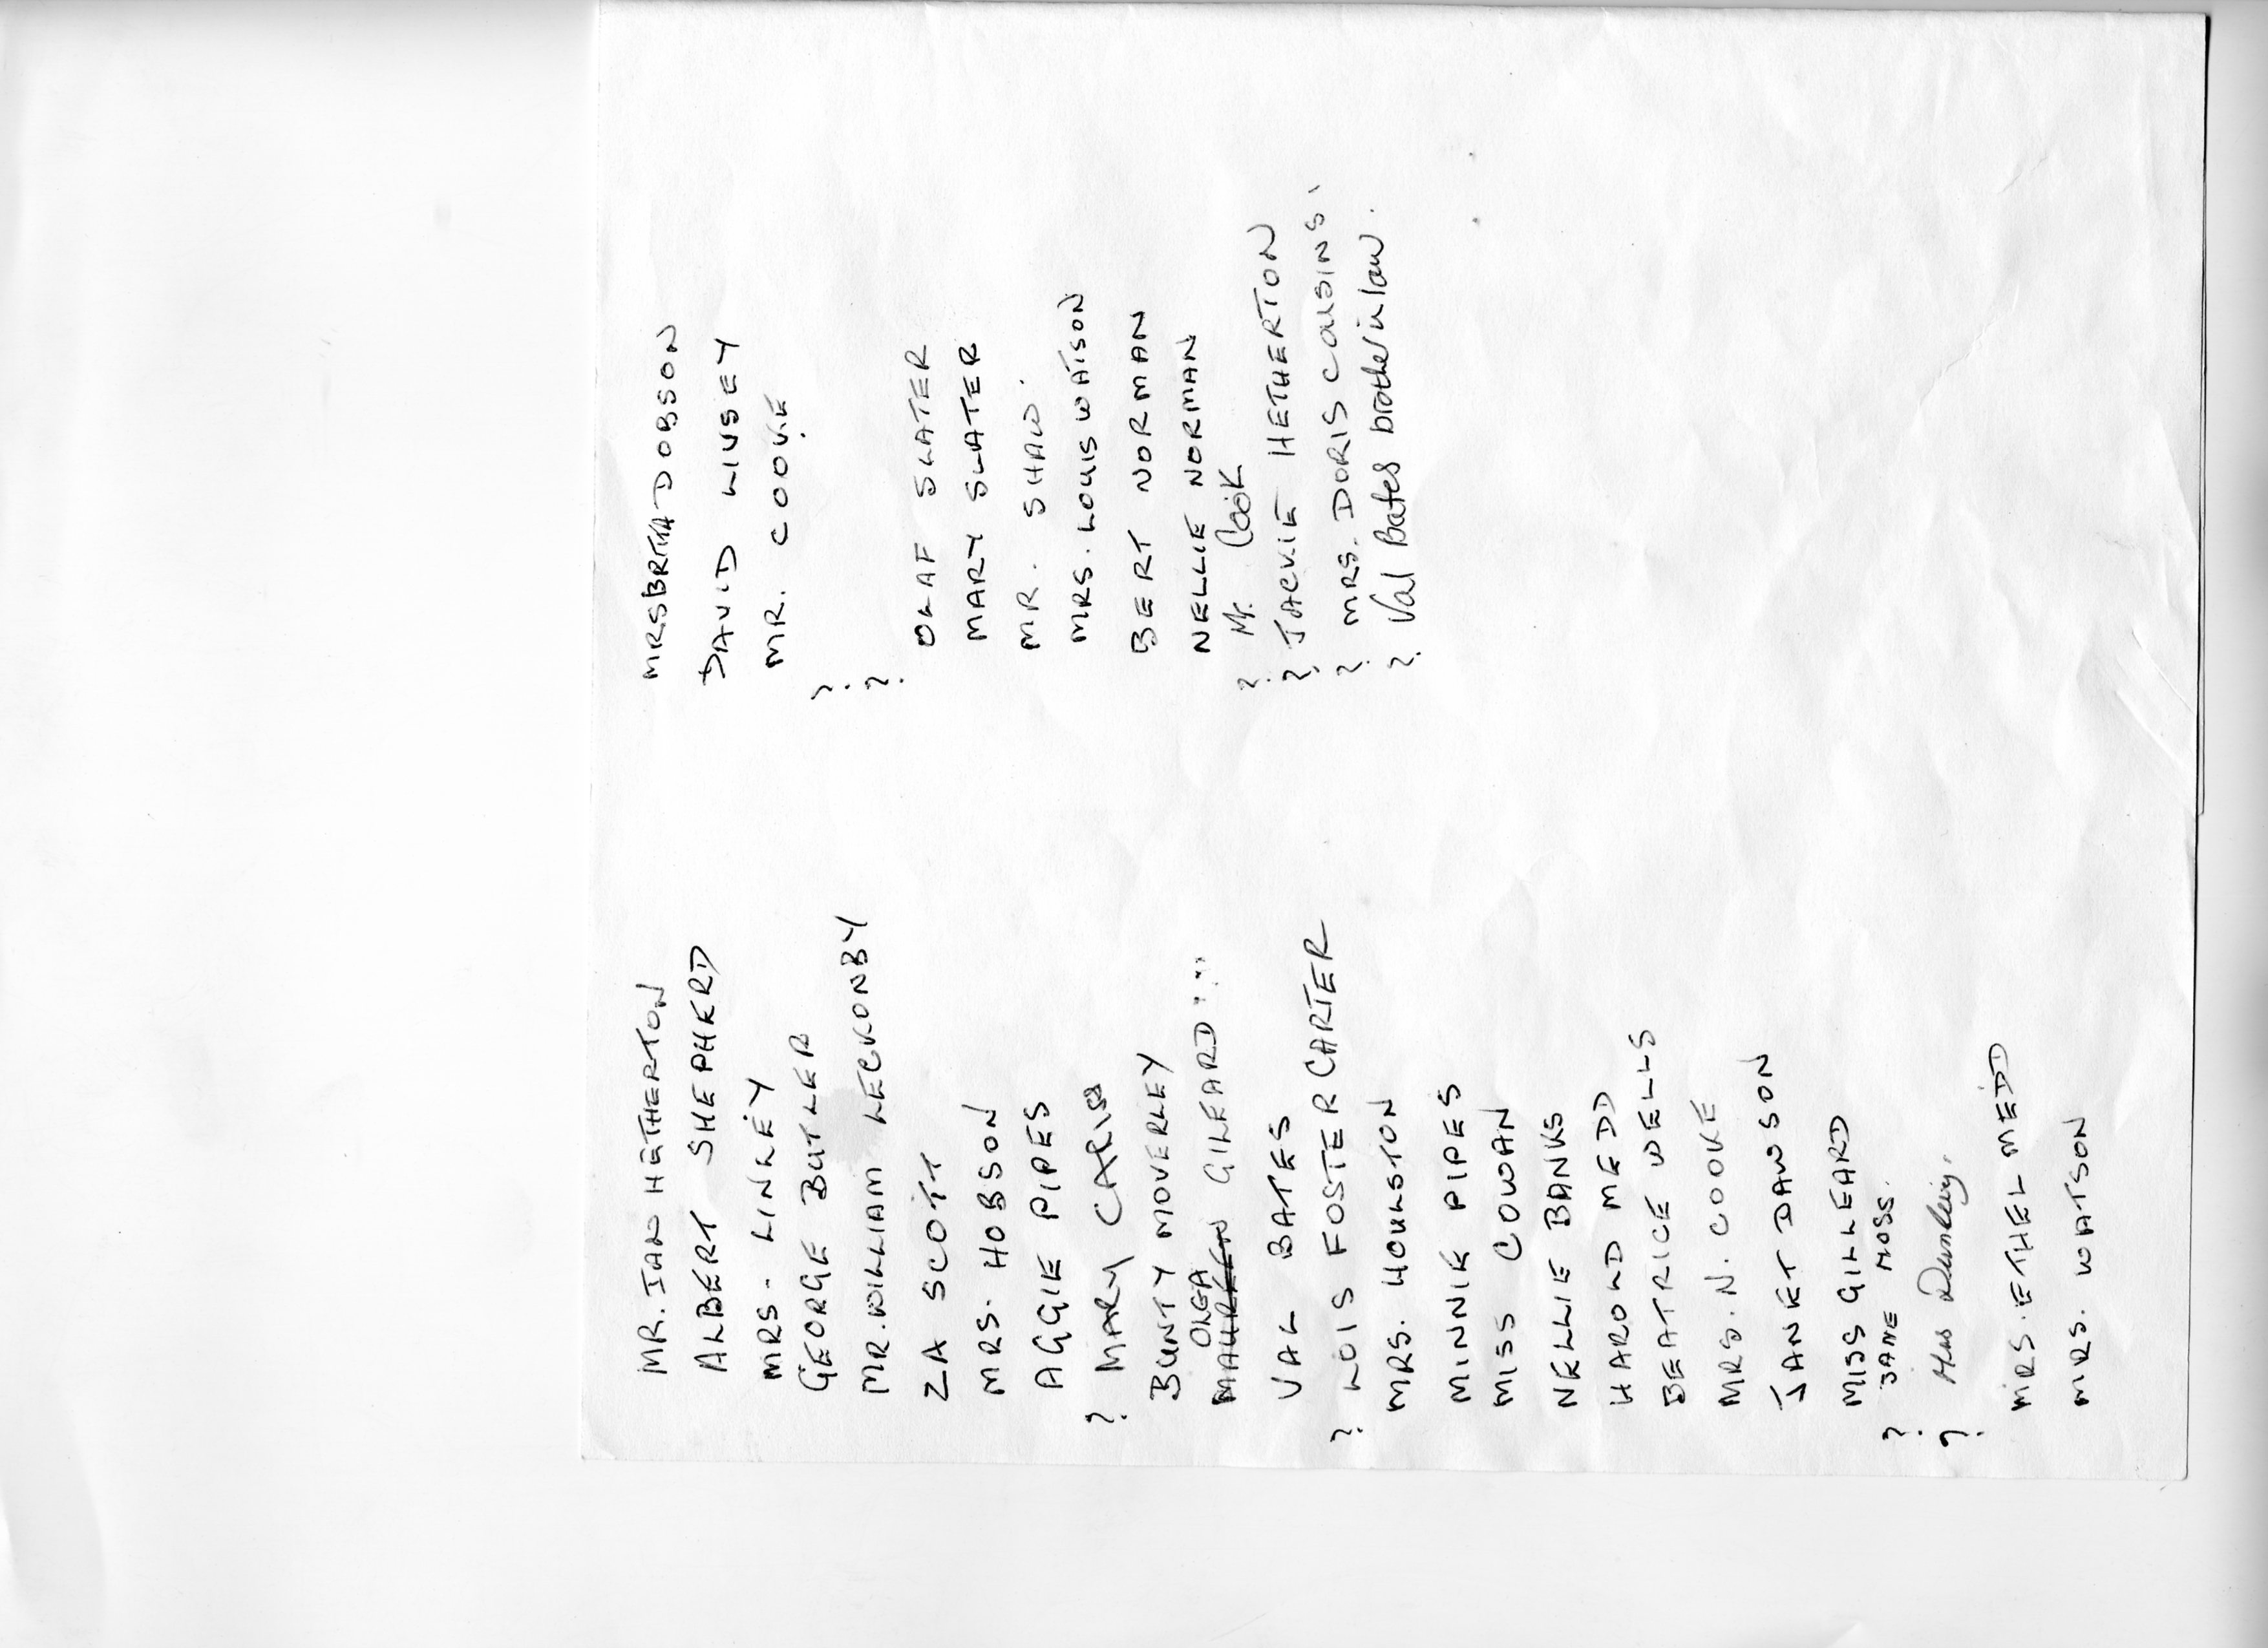 MR. IAN HETHERTON
ALBERT SHEPHERD
MRS. LINLEY
GEORGE BUTLER
MR. WILLIAM LECKONBY
ZA SCOTT
MRS. HOBSON
AGGIE PIPES
? MARY CARISS
BUNTY MOVERLEY
OLGA
MAUREEN GILEARD
VAL BATES
? LOIS FOSTER CARTER
MRS. HOULSTON
MINNIE PIPES
MISS COWAN
NELLIE BANKS
HAROLD MEDD
BEATRICE WELLS
MRS. N. COOKE
JANET DAWSON
MISS GILLEARD
? JANE MOSS.
?
MRS. ETHEL MEDD
MRS. WATSON
MRS BRTHA DOBSON
DAVID LIVSEY
MR. COOKE
?
?
OLAF SLATER
MARY SLATER
MR. SHAW.
MRS. LOUIS WATSON
BERT NORMAN
NELLIE NORMAN
? Mr. Cook
? JACKIE HETHERTON
? MRS. DORIS COUSINS.
? Val Bates brother in law.